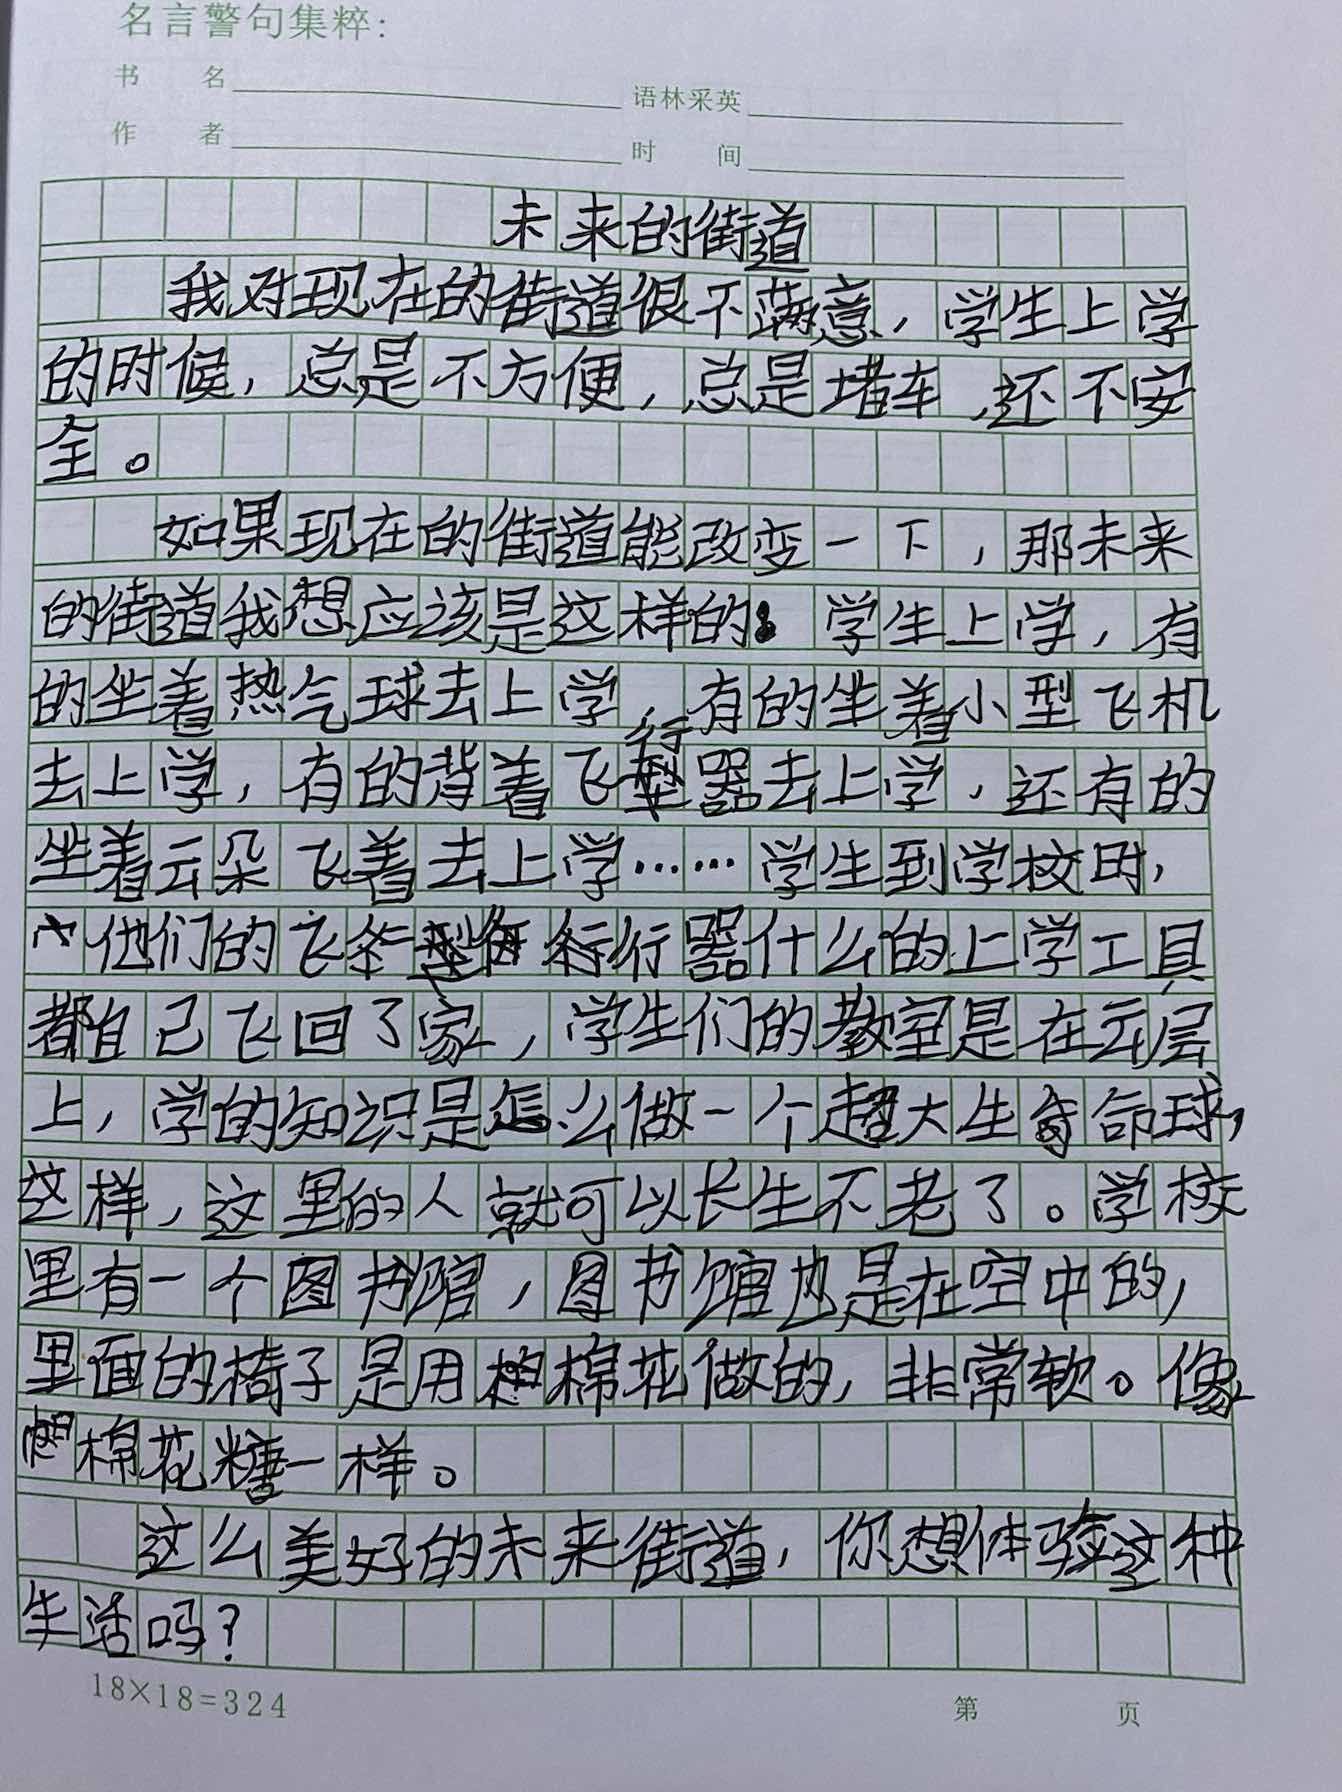 名言警句集粹:
书 名 语林采英
作 者 时 间
未来的街道
我对现在的街道很不满意，学生上学
的时候，总是不方便，总是堵车，还不安
全。
如果现在的街道能改变一下，那未来
的街道我想应该是这样的：学生上学，有
的坐着热气球去上学，有的坐着小型飞机
去上学，有的背着飞行器去上学，还有的
坐着云朵飞着去上学……学生到学校时，
他们的飞行器什么的上学工具
都自己飞回了家，学生们的教室是在云层
上，学的知识是怎么做一个超大生命球，
这样，这里的人就可以长生不老了。学校
里有一个图书馆，图书馆也是在空中的，
里面的椅子是用棉花做的，非常软。像
棉花糖一样。
这么美好的未来街道，你想体验这种
生活吗？
18×18=324 第 页